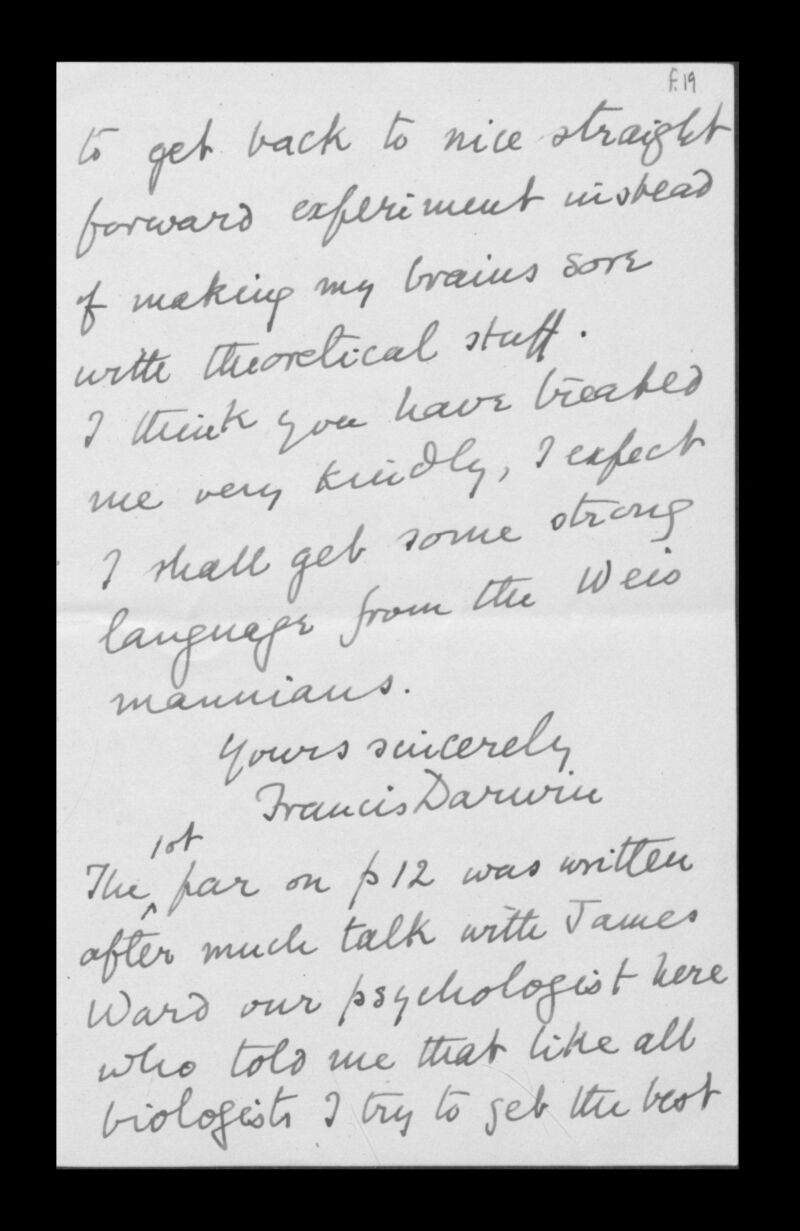 f.19
to get back to nice straight
forward experiment instead
of making my brains sore
with theoretical stuff.
I think you have treated
me very kindly, I expect
I shall get some strong
language from the Weis
mannians.
Yours sincerely
Francis Darwin
1st
The ^ par on p 12 was written
after much talk with James
Ward our psychologist here
who told me that like all
biologists I try to get the best